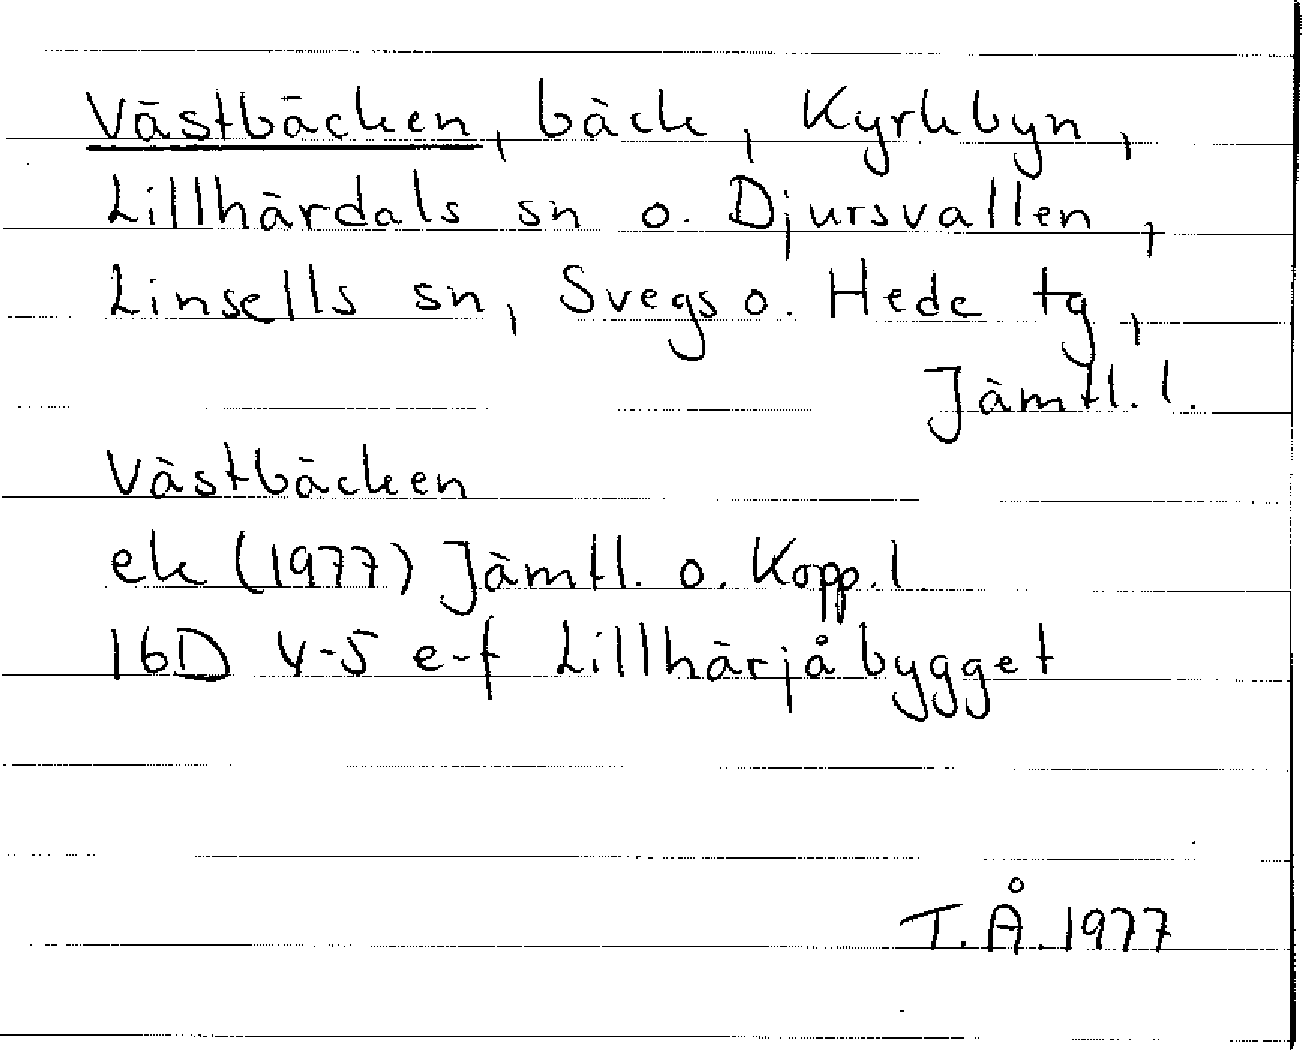 Västbäcken, bäck, Kyrkbyn,
Lillhärdals sn o. Djursvallen,
Linsells sn, Svegs o. Hede tg,
Jämtl. l.
Västbäcken
ek (1977) Jämtl. o. Kopp. l
16D 4-5 e-f Lillhärjåbygget
T. Å. 1977